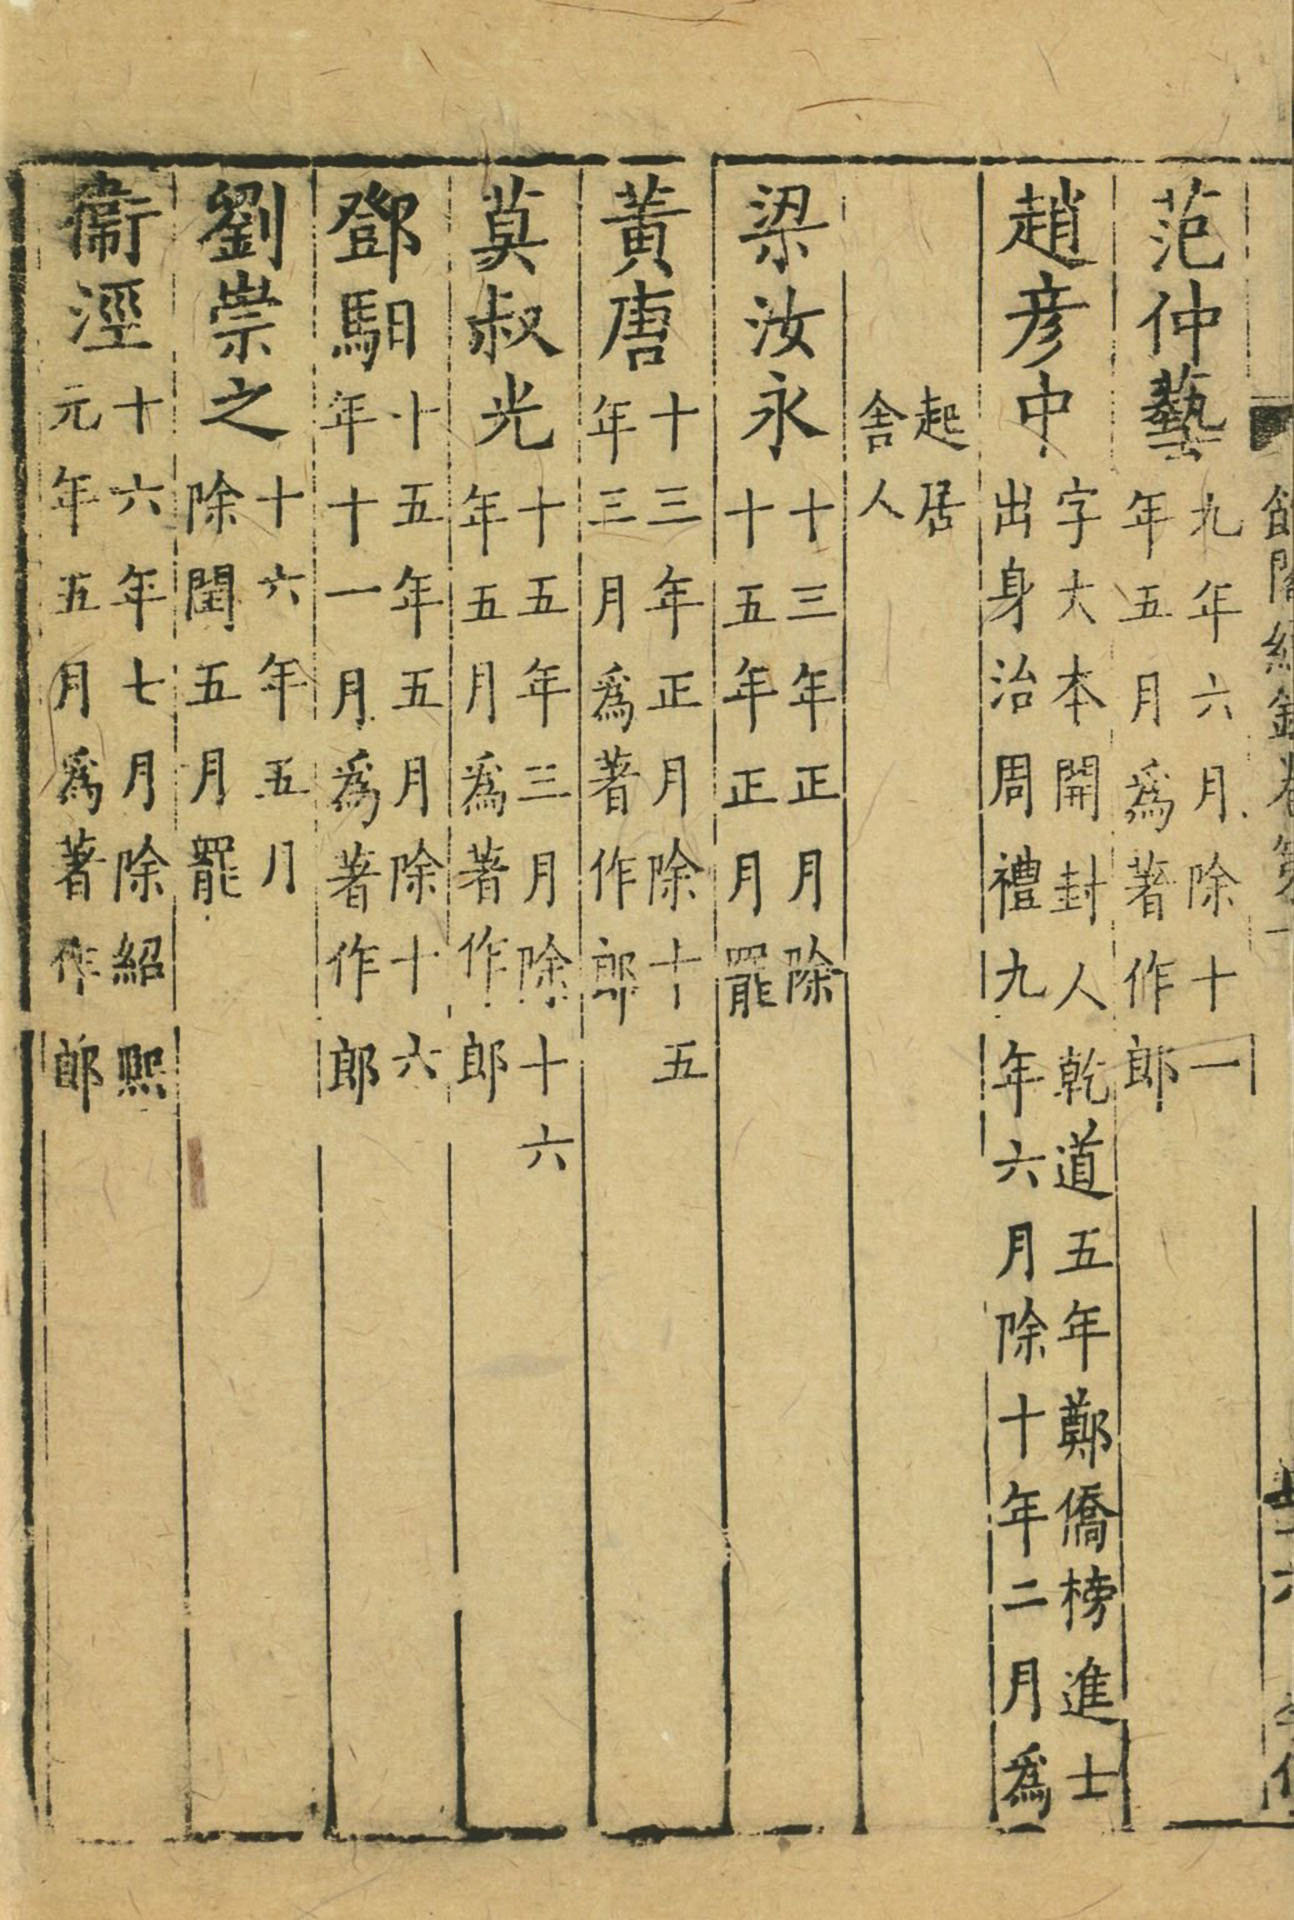 館閣續錄卷第
范仲藝九年六月除十一
年五月爲著作郎
趙彦中字大本開封人乾道五年鄭僑榜進士
出身治周禮九年六月除十年二月爲
起居
舍人
梁汝永十三年正月除
十五年正月罷
黃唐十三年正月除十五
年三月爲著作郎
莫叔光十五年三月除十六
年五月爲著作郎
鄧馹十五年五月除十六
年十一月爲著作郎
劉崇之十六年五月
除閏五月罷
衞涇十六年七月除紹熙
元年五月爲著作郎